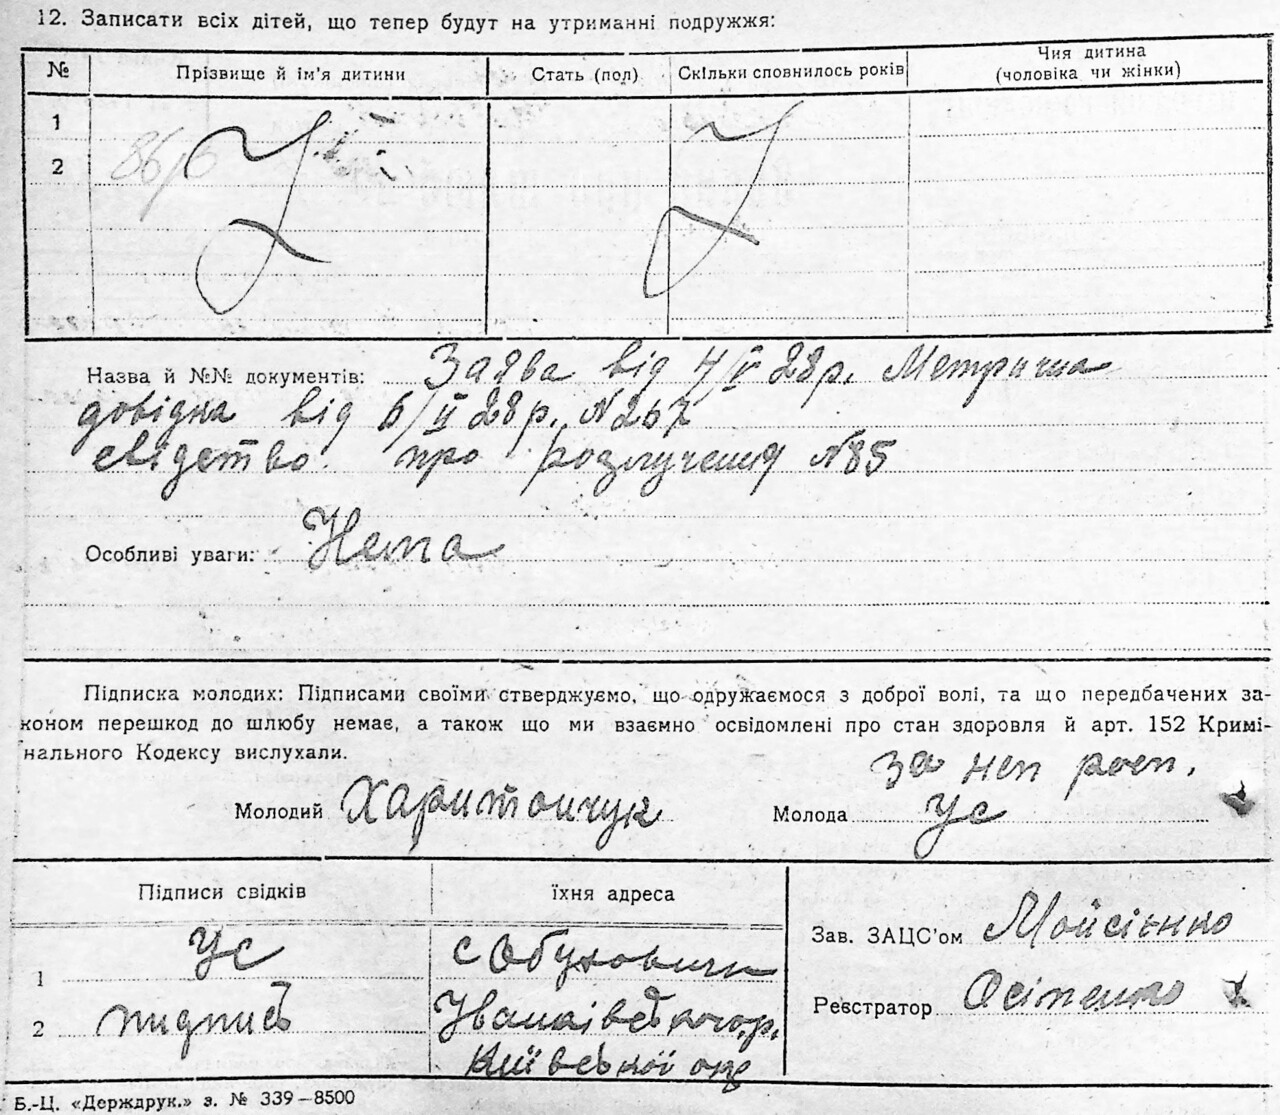 12. Записати всіх дітей, що тепер будут на утриманні подружжя:
№ Прізвище й ім'я дитини Стать (пол) Скільки сповнилось років Чия дитина
(чоловіка чи жінки)
1
2
Назва й №№ документів: Заява від 4/V 28р. Метрична
довідка від 6/II 28р. N267
свідетво про розлучения N85
Особливі уваги: Нема
Підписка молодих: Підписами своїми стверджуємо, що одружаємося з доброї волі, та що передбачених за-
коном перешкод до шлюбу немає, а також що ми взаємно освідомлені про стан здоровля й арт. 152 Кримі-
нального Кодексу вислухали.
за неп росп.
Молодий Харитончук Молода Ус
Підписи свідків їхня адреса
1 Ус с Обуховичи
2 пидпись Іванківського р.
Київської окр
Зав. ЗАЦС'ом Мойсієнко
Реєстратор Осіпенко
Б.-Ц. «Держдрук.» з. № 339–8500